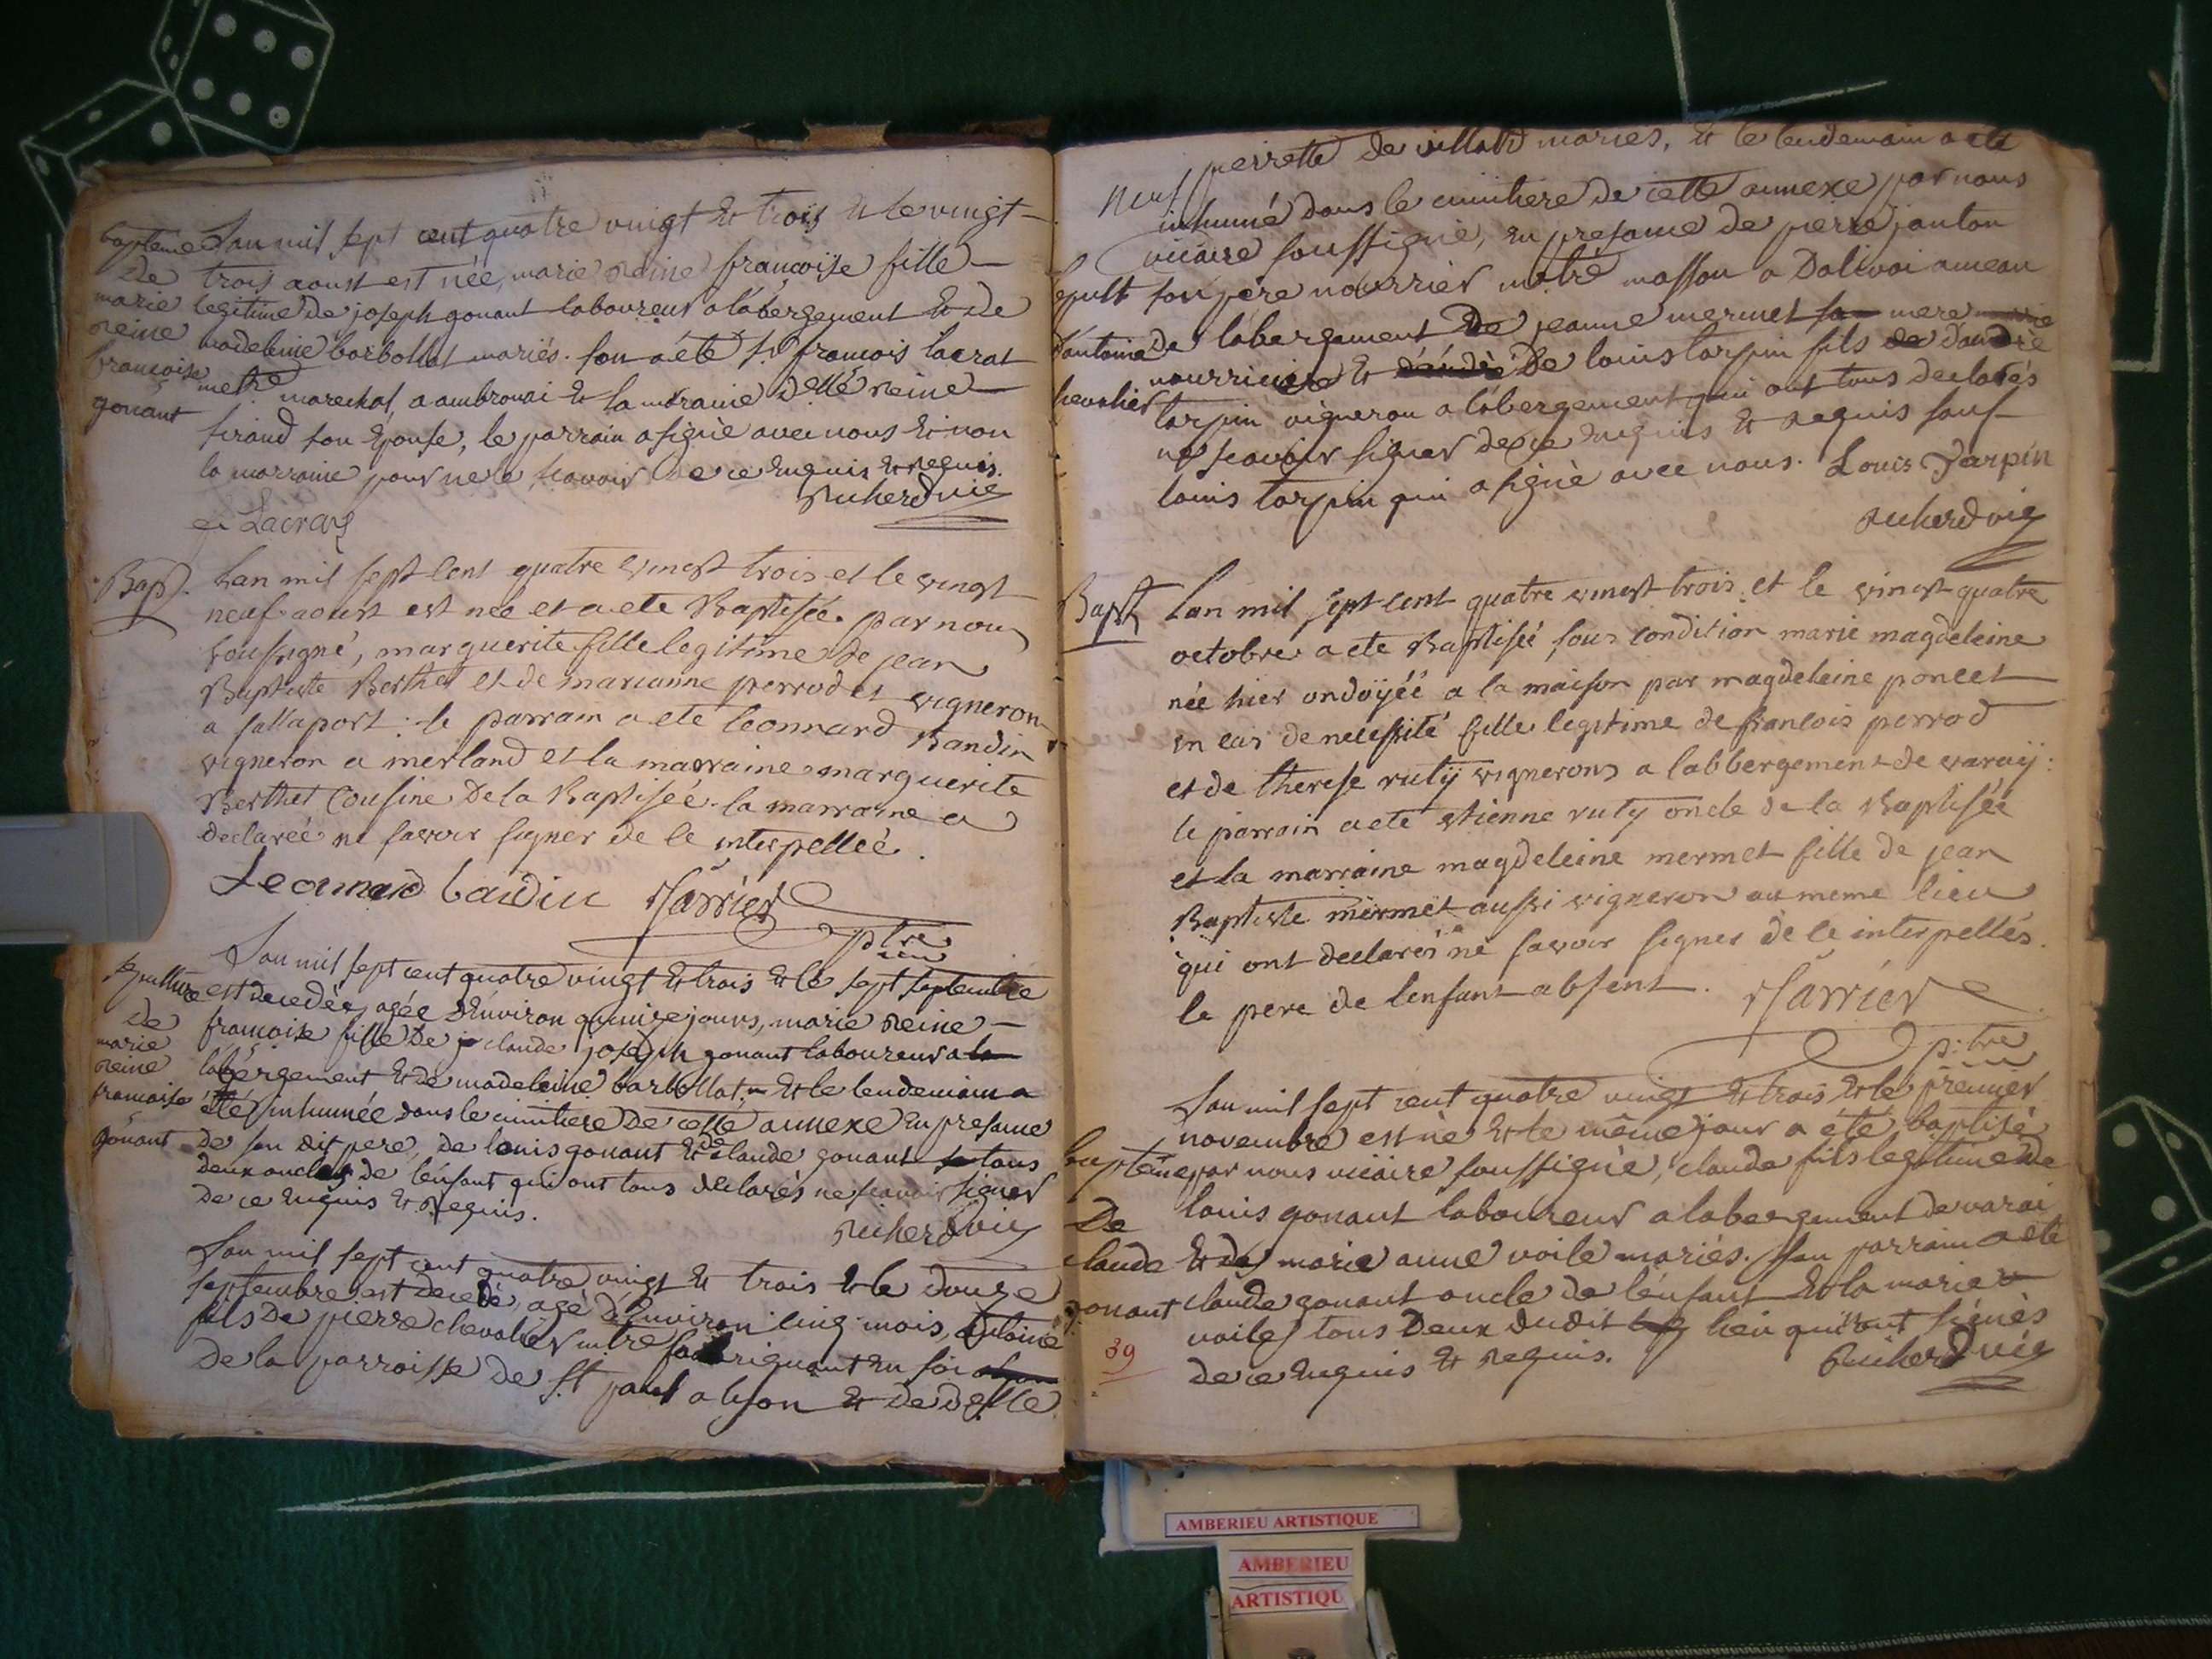 bapteme
de
marie
reine
francoise
gonant
Lan mil sept cent quatre vingt et trois et le vingt
trois aoust est née, marie reine francoise fille
legitime de joseph gonant laboureur a labergement et de
madeleine barbollat mariés. son a été sr francois lacrat
metre marechal, a ambronai et la maraine delle reine
siraud son epouse, le parrain a signé avec nous et non
la marraine pour ne le scavoir de ce enquis et requis.
Richerd vic
Lacrat
Bapt.
Lan mil sept cent quatre vingt trois et le vingt
neuf aoust est neé et a ete Baptisée par nous
soussigné, marguerite fille legitime de jean
Baptiste Berthet et de marianne perrodet vignerons
a sallaport : le parrain a ete leonnard Bandin
vigneron a merland et la marraine marguerite
Berthet cousine de la Baptisée. la marraine a
declareé ne savoir signer de ce interpelleé.
Leonnard baudin Marrier
ptre
sepulture
de
marie
reine
francoise
gonant
Lan mil sept cent quatre vingt et trois et le sept septembre
est decedée, agée d'environ quinze jours, marie reine
francoise fille de claude joseph gonant laboureur a la
labergement et de madeleine barbollat et le lendemain a
été inhumée dans le cimitiere de cette annexe en presance
de son dit pere, de louis gonant et de claude gonant tous
deux oncles de l'enfant qui ont tous declarés ne scavoir signer
de ce enquis et requis.
Richerd vic
Lan mil sept cent quatre vingt et trois et le douze
septembre est decedé, agé d'environ cinq mois, antoine
fils de pierre chevalier mtre fabriquant en soi
de la parroisse de st paul a lyon et de delle
Neuf
sepult
d'antoine
chevalier
pierrette de villard mariés, et le lendemain a été
inhumé dans le cimitiere de cette annexe par nous
vicaire soussigné, en presance de pierre janton
son pere nourrier metre masson a Dalivoi ameau
de labergement de jeanne mermet sa mere
nourriciere et de louis tarpin fils d'andre
tarpin vigneron a labergement qui ont tous declarés
ne scavoir signer de ce enquis et requis sauf
louis tarpin qui a signé avec nous. Louis Tarpin
Richerd vic
Bapt
Lan mil sept cent quatre vingt trois et le vingt quatre
octobre a ete Baptisée sous condition marie magdeleine
née hier ondoÿéé a la maison par magdeleine poncet
en cas de necessité fille legitime de francois perrod
et de therese rutÿ vignerons a labbergement de varaÿ :
le parrain a ete etienne ruty oncle de la Baptisée
et la marraine magdeleine mermet fille de jean
Baptiste mermet aussi vigneron au meme lieu
qui ont declarés ne savoir signer de ce interpellés.
le pere de lenfant absent. Marrier
ptre
bapteme
De
claude
gonant
39
Lan mil sept cent quatre vingt et trois et le premier
novembre est né et le même jour a été baptisé
par nous vicaire soussigné, claude fils legitime de
louis gonant laboureur a labergement de varai
et de marie anne voile mariés. son parrain a été
claude gonant oncle de l'enfant et la marie
voile tous deux dudit lieu qui
de ce enquis et requis.
Richerd vic
AMBERIEU ARTISTIQUE
AMBERIEU
ARTISTIQU